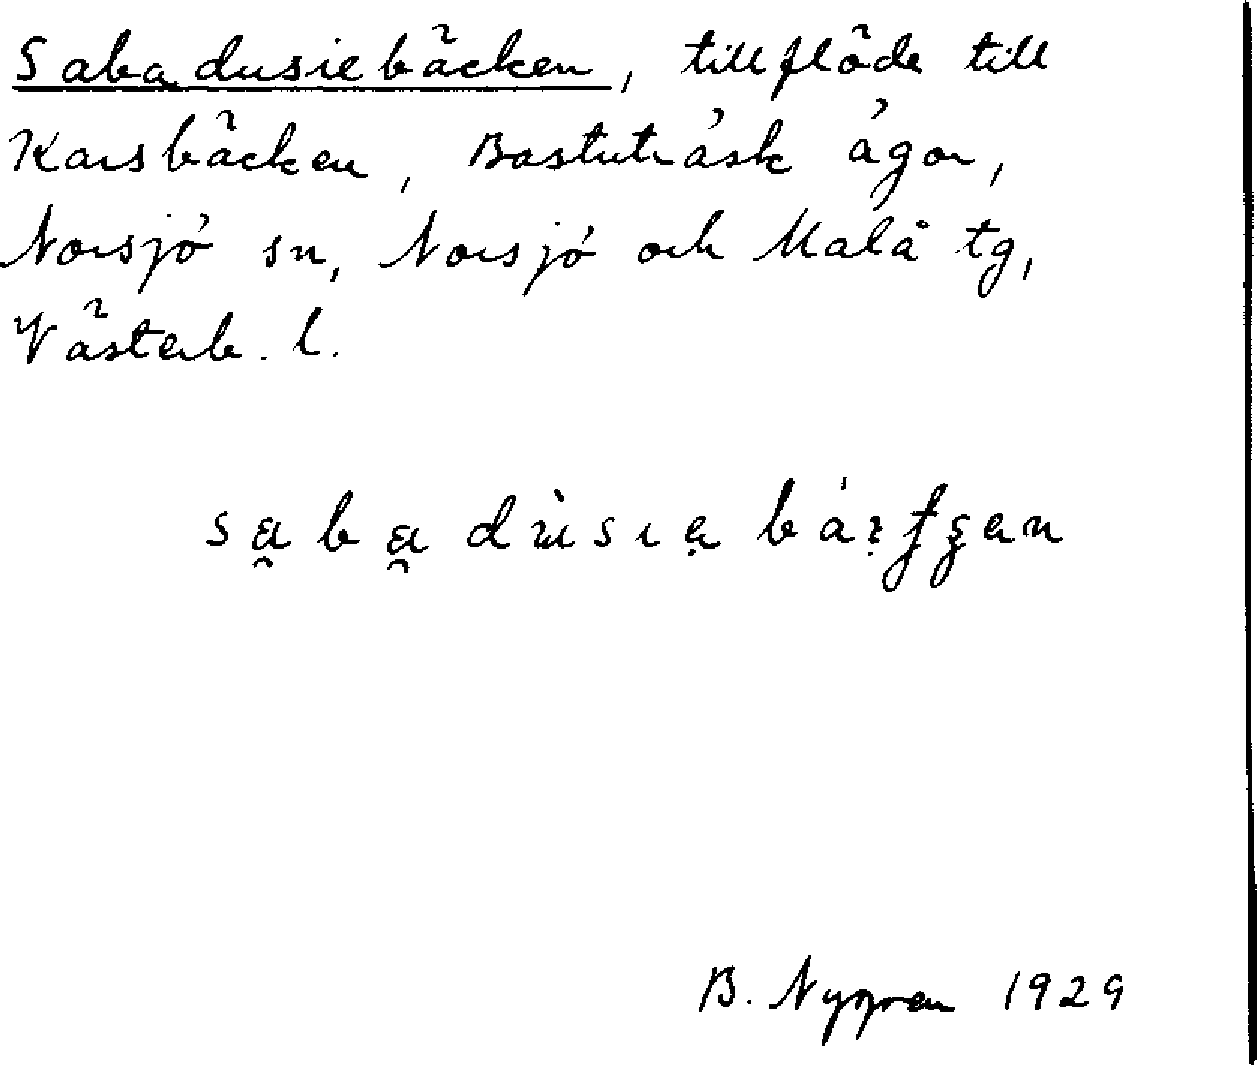 Sabadusiebäcken, tillflöde till
Karsbäcken, Bastuträsk ägor,
Norsjö sn, Norsjö och Malå tg,
Västerb. l.
B. Nygren 1929